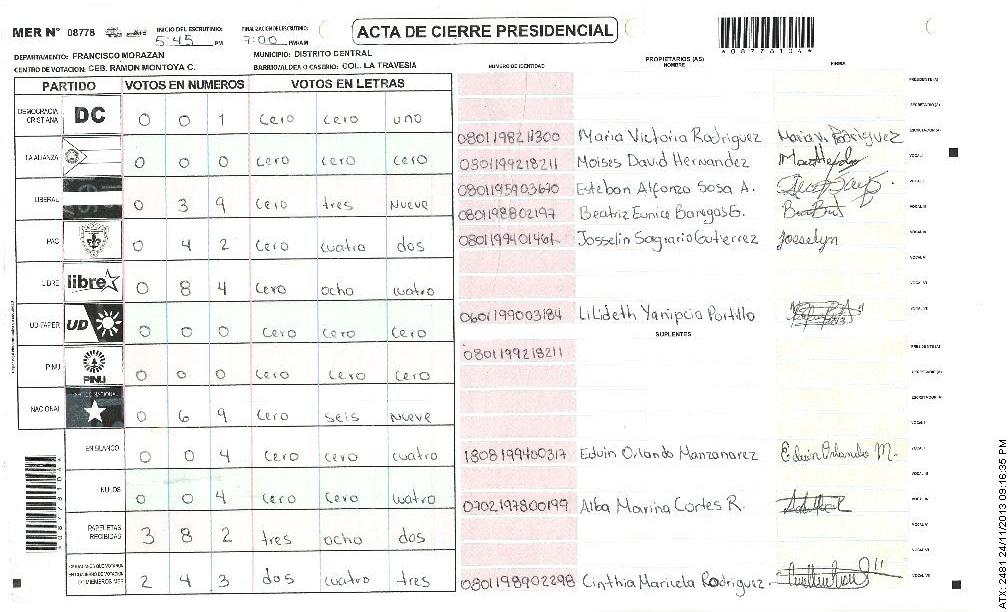 MER N° 08778 INICIO DEL ESCRUTINIO: 5:45 PM FINALIZACION DE ESCRUTINIO: 7:00 PM/AM ACTA DE CIERRE PRESIDENCIAL
DEPARTAMENTO: FRANCISCO MORAZAN MUNICIPIO: DISTRITO CENTRAL
CENTRO DE VOTACION: CEB. RAMON MONTOYA C. BARRIO/ALDEA O CASERIO: COL. LA TRAVESIA
PARTIDO VOTOS EN NUMEROS VOTOS EN LETRAS
DEMOCRACIA CRISTIANA DC 0 0 1 cero cero uno
LA ALIANZA 0 0 0 cero cero cero
LIBERAL 0 3 9 cero tres nueve
PAC 0 4 2 cero cuatro dos
LIBRE libre 0 8 4 cero ocho cuatro
UD-FAPER UD 0 0 0 cero cero cero
PINU PINU 0 0 0 cero cero cero
NACIONAL 0 6 9 cero seis nueve
EN BLANCO 0 0 4 cero cero cuatro
NULOS 0 0 4 cero cero cuatro
PAPELETAS RECIBIDAS 3 8 2 tres ocho dos
2 4 3 dos cuatro tres
NUMERO DE IDENTIDAD PROPIETARIOS (AS) NOMBRE FIRMA
PRESIDENTE(A)
SECRETARIO(A)
0801198211300 Maria Victoria Rodriguez Maria V. Rodriguez ESCRUTADOR(A)
0801199218211 Moises David Hernandez VOCAL I
0801195903670 Esteban Alfonzo Sosa A.
0801198802197 Beatriz Eunice Banegas G.
0801199401461 Josselin Sagrario Gutierrez Josselyn
0601199003184 Lilideth Yamipcia Portillo
SUPLENTES
0801199218211 PRESIDENTE(A)
SECRETARIO(A)
ESCRUTADOR(A)
1808199400317 Edwin Orlando Manzanarez Edwin Orlando M.
0702197800199 Alba Marina Cortes R.
0801198902298 Cinthia Maricela Rodriguez
ATX: 2481 24/11/2013 09:16:35 PM